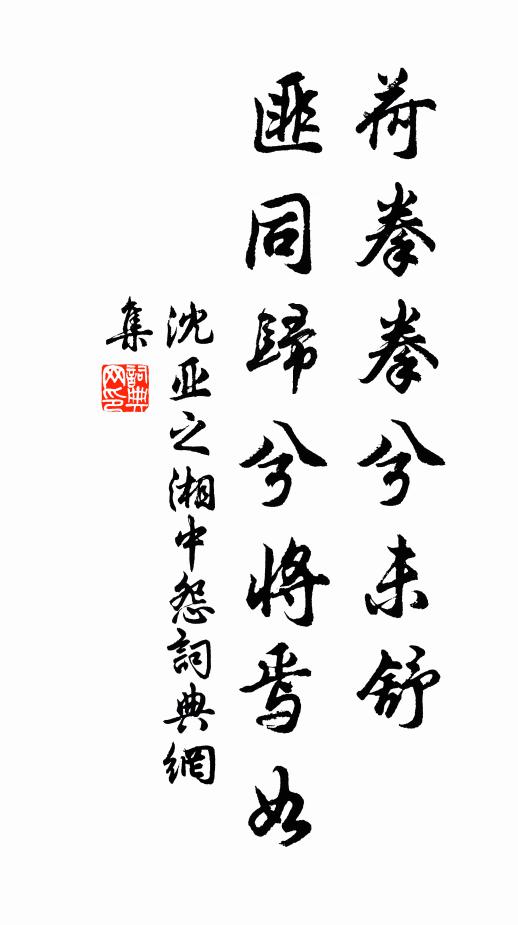 荷拳拳兮未舒
匪同歸兮將焉如
沈亚之湘中怨詞典網
集
詞典
网印